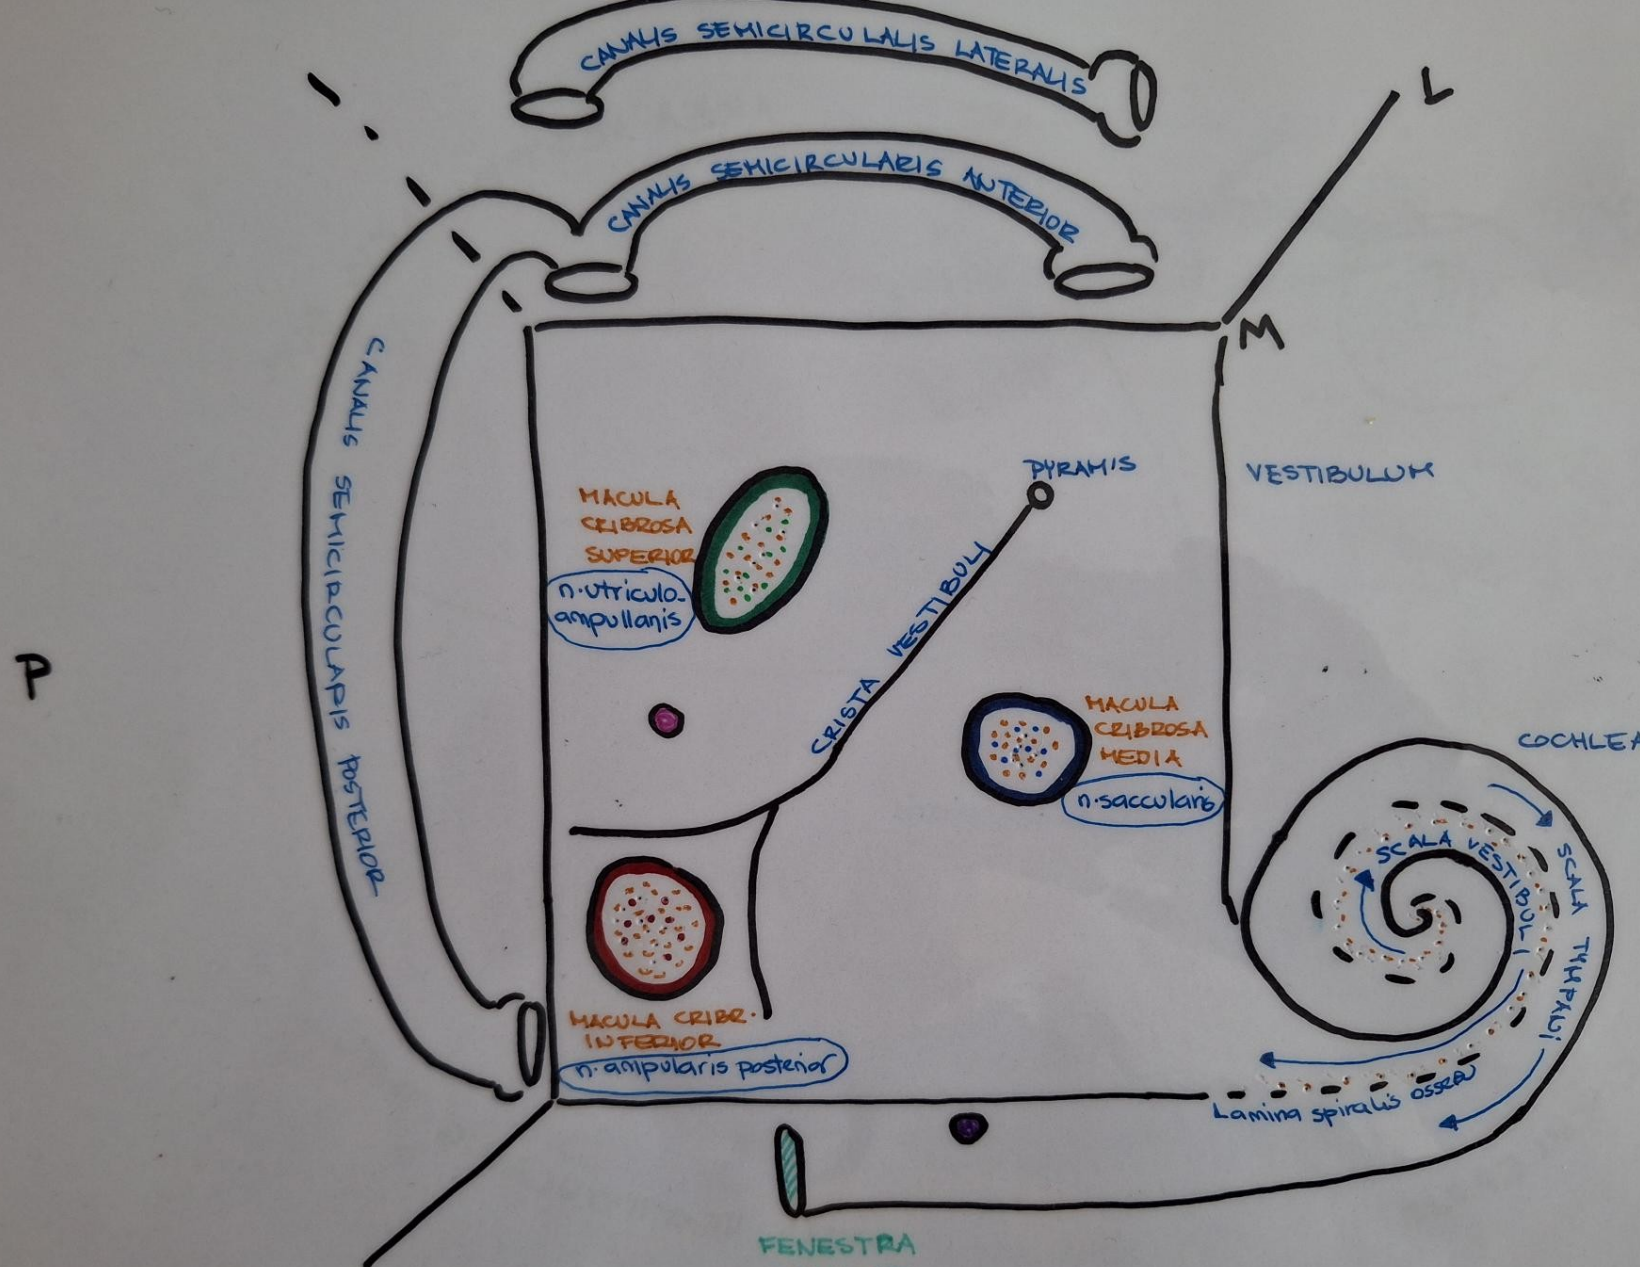 CANALIS SEMICIRCULALIS LATERALIS
L
CANALIS SEMICIRCULARIS ANTERIOR
M
CANALIS SEMICIRCULARIS POSTERIOR
PYRAMIS
VESTIBULUM
MACULA
CRIBROSA
SUPERIOR
n.utriculo-
ampullaris
CRISTA VESTIBULI
P
MACULA
CRIBROSA
MEDIA
n.saccularis
COCHLEA
SCALA VESTIBULI
SCALA TYMPANI
MACULA CRIBR.
INFERIOR
n. ampularis posterior
Lamina spiralis ossea
FENESTRA